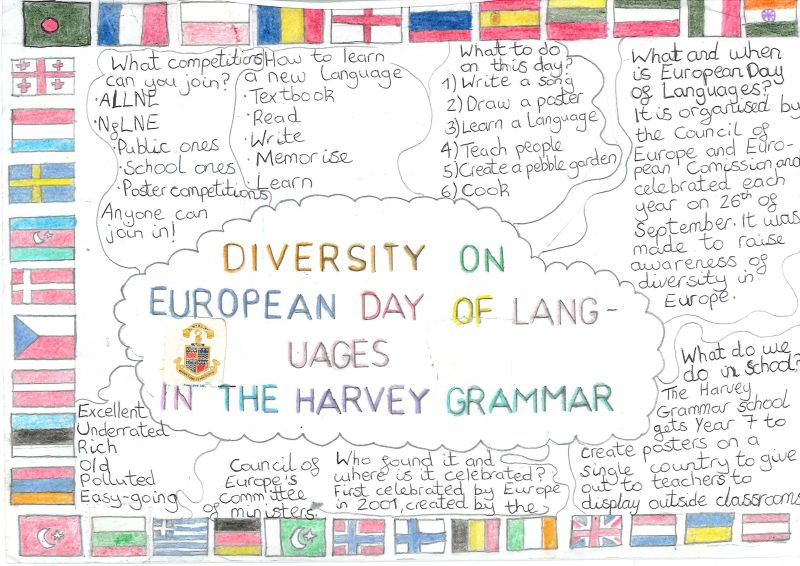 What competitions
can you join?
·ALLNE
·NgLNE
·Public ones
·School ones
·Poster competitions
Anyone can
join in!
How to learn
a new language
·Textbook
·Read
·Write
·Memorise
·Learn
What to do
on this day?
1) Write a song
2) Draw a poster
3) Learn a language
4) Teach people
5) Create a pebble garden
6) Cook
What and when
is European Day
of Languages?
It is organised by
the Council of
Europe and Euro-
pean Comission and
celebrated each
year on 26th of
September. It was
made to raise
awareness of
diversity in
Europe.
DIVERSITY ON
EUROPEAN DAY OF LANG-
UAGES
IN THE HARVEY GRAMMAR
What do we
do in school?
The Harvey
Grammar school
gets Year 7 to
create posters on a
single country to give
out to teachers to
display outside classrooms
Excellent
Underrated
Rich
Old
Polluted
Easy-going
Who found it and
where is it celebrated?
First celebrated by Europe
in 2001, created by the
Council of
Europe's
committee
of ministers.